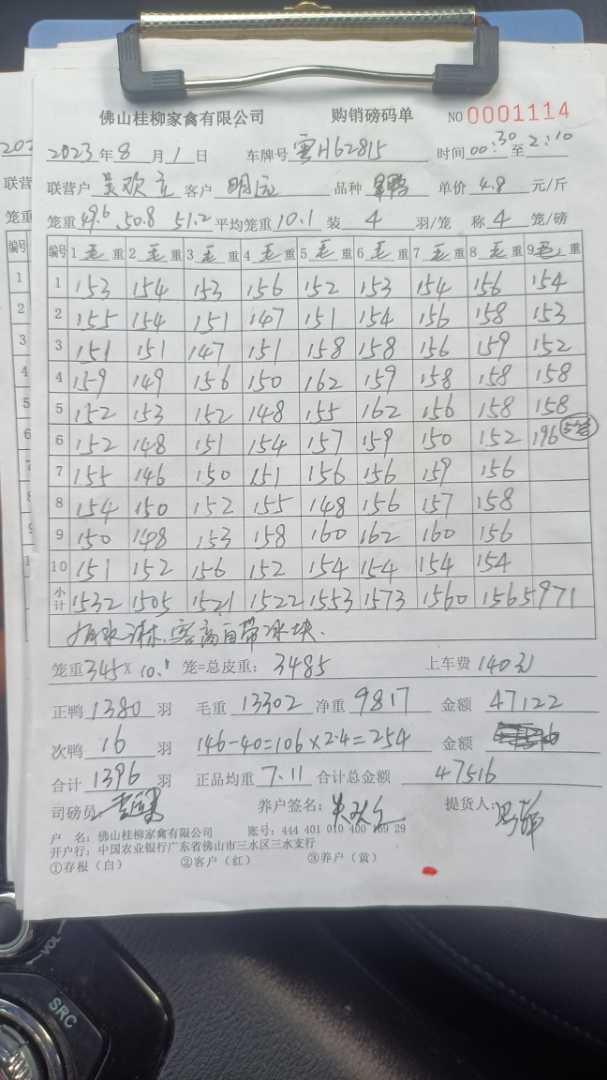 佛山桂柳家禽有限公司 购销磅码单 NO 0001114
2023年8月1日 车牌号 粤H62815 时间 00:30 至 2:10
联营户 客户 明记 品种 鸭 单价 4.8 元/斤
笼重 49.6 50.8 51.2 平均笼重 10.1 装 4 羽/笼 称 4 笼/磅
编号 1 毛重 2 毛重 3 毛重 4 毛重 5 毛重 6 毛重 7 毛重 8 毛重 9 毛重
1 153 154 153 156 152 153 154 156 154
2 155 154 151 147 151 154 156 158 153
3 151 151 147 151 158 158 156 159 152
4 159 149 156 150 162 159 158 158 158
5 152 153 152 148 155 162 156 158 158
6 152 148 151 154 157 159 150 152 196 5笼
7 155 146 150 151 156 156 159 156
8 154 150 152 155 148 156 157 158
9 150 148 153 158 160 162 160 156
10 151 152 156 152 154 154 154 154
小计 1532 1505 1521 1522 1553 1573 1560 1565 971
自带冰块.
笼重 345 × 10.1 笼=总皮重: 3485 上车费 140元
正鸭 1380 羽 毛重 13302 净重 9817 金额 47122
次鸭 16 羽 146-40=106×2.4=254 金额
合计 1396 羽 正品均重 7.11 合计总金额 47516
司磅员: 养户签名: 提货人:
户 名: 佛山桂柳家禽有限公司 账号: 444 401 010 400 169 29
开户行: 中国农业银行广东省佛山市三水区三水支行
①存根(白) ②客户(红) ③养户(黄)
202
联营
笼重
编号
1
2
3
4
5
6
7
8
9
1
VOL
SRC